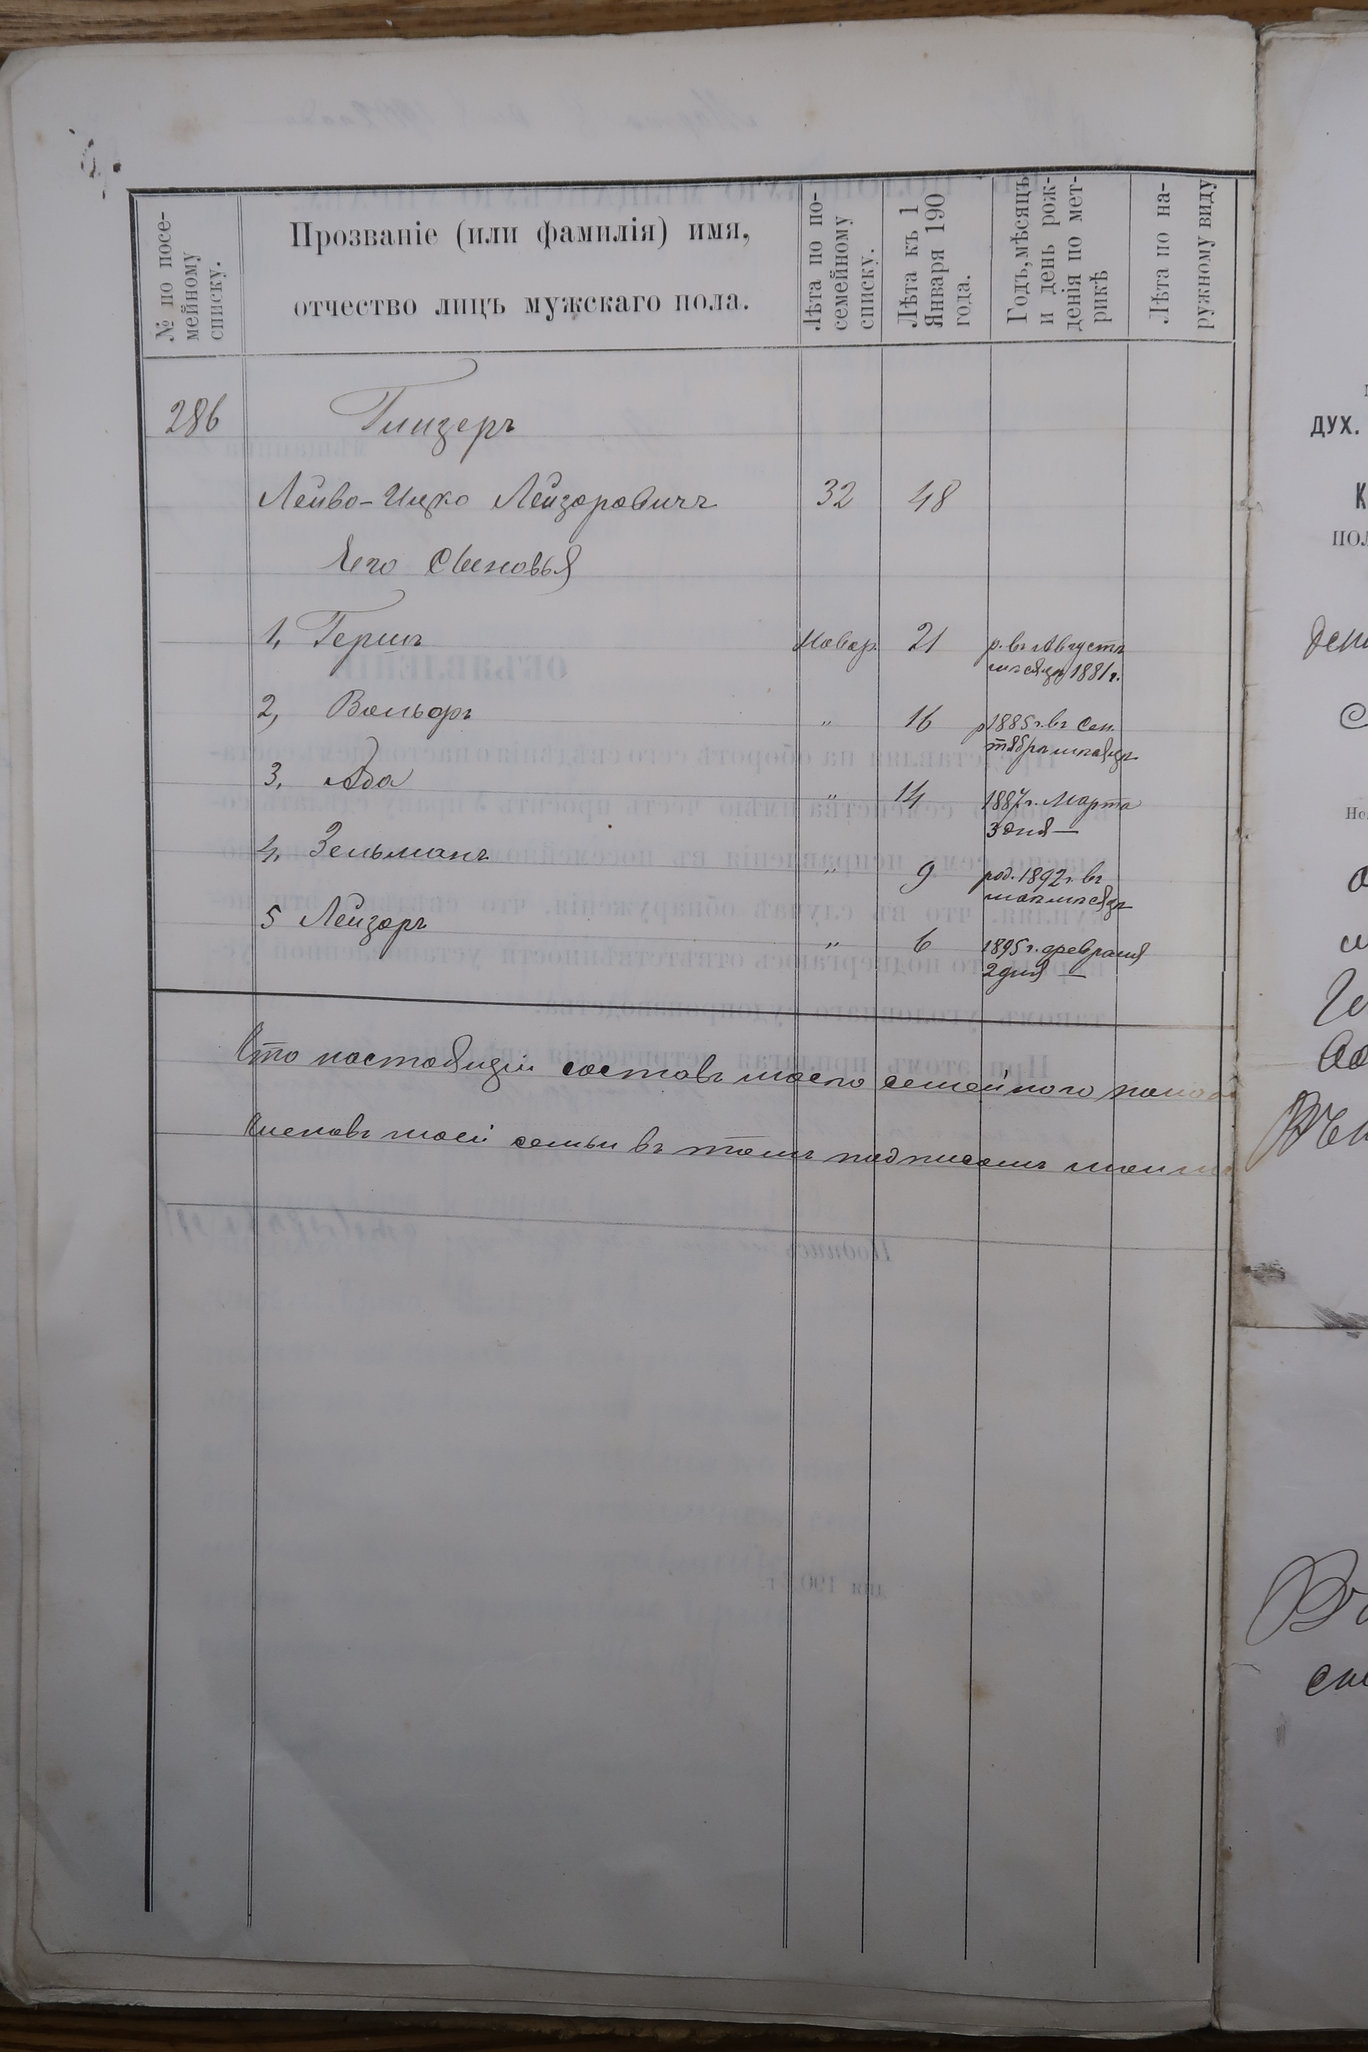 № по посе-
мейному
списку.
Прозваніе (или фамилія) имя,
отчество лицъ мужскаго пола.
Лѣта по по-
семейному
списку.
Лѣта къ 1
Января 190
года.
Годъ, мѣсяцъ
и день рож-
денія по мет-
рикѣ
Лѣта по на-
ружному виду
286 Глизеръ
Лейво-Ицко Лейзоровичъ 32 48
Его Сыновья
1, Гершъ Новор. 21 р. въ Августѣ
мѣсяцѣ 1881 г.
2, Вольфъ " 16 р 1885 г. въ Сен
тябрѣ мѣсяцѣ
3, Абa " 14 1887 г. Марта
3 дня —
4, Зельманъ " 9 род. 1892 г. въ
маѣ мѣсяцѣ
5 Лейзоръ " 6 1895 г. февраля
2 дня —
Что настоящій составъ моего семейного
членовъ моей семьи въ томъ подписомъ
ДУХ.
К
ПОЛ